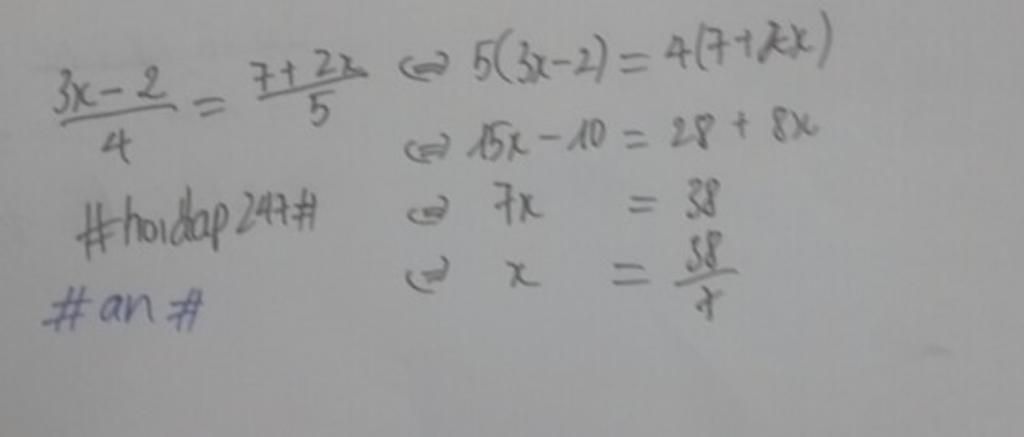 (3x-2)/4 = (7+2x)/5 ⇔ 5(3x-2) = 4(7+2x)
⇔ 15x - 10 = 28 + 8x
#hoidap247# ⇔ 7x = 38
⇔ x = 38/7
#an#